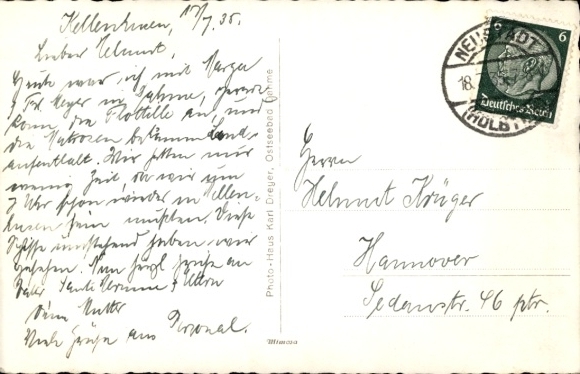 Kellenhusen, 17/7.35.
Lieber Helmut,
Heute war ich mit Marga
& Frl. Meyer in Dahme, gerade
kam die Flottille an und
die Matrosen bekamen Land-
aufenthalt. Wir hatten nur
wenig Zeit, da wir um
7 Uhr schon wieder in Kellen-
husen sein mußten. Diese
Schiffe umstehend haben wir
gesehen. Nun herzl. Grüße an
Vater, Tante Hermine &
Deine Mutter
Viele Grüße aus
Photo-Haus Karl Dreyer, Ostseebad Dahme
Mimosa
NEUSTADT
18.
(HOLST)
6
Deutsches Reich
Herrn
Helmut Krüger
Hannover
Sedanstr. 46 ptr.